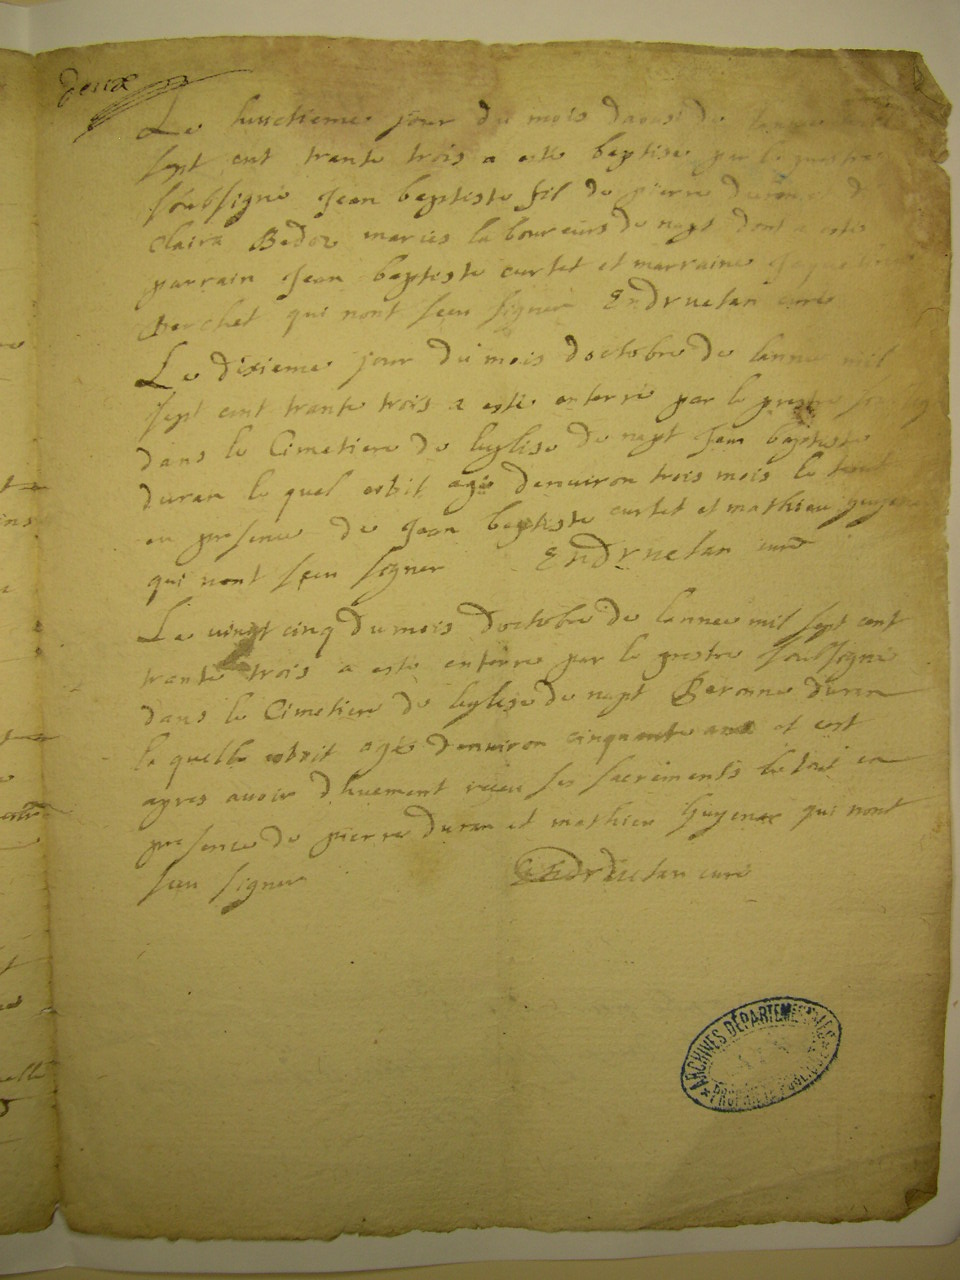 deux
Le huictieme jour du mois daoust de lannee mil
sept cent trante trois a este baptise par le prestre
soubsigné Jean baptiste fil de pierre duran et
Claira Bedoz mariés laboureurs de nept dont a este
parrain Jean baptiste curtet et marraine Jaqueline
Perchet qui nont sceu signer Endruelan curé
Le dixieme jour du mois doctobre de lannee mil
sept cent trante trois a esté enterré par le prestre soubsigne
dans le Cimetiere de leglise de nept Jean baptiste
duran le quel estoit agé denuiron trois mois le tout
en presence de Jean baptiste curtet et mathieu
qui nont sceu signer Endruelan curé
Le vingt cinq du mois doctobre de lannee mil sept cent
trante trois a esté enterre par le prestre soubsigné
dans le Cimetiere de leglise de nept Peronne duran
la quelle estoit agée denuiron cinquante ans et cest
apres auoir dhuement receu ses sacrements le tout en
presence de pierre duran et mathieu qui nont
sceu signer Endruelan curé
ARCHIVES DÉPARTEMENTALES
* PROPRIÉTÉ PUBLIQUE *